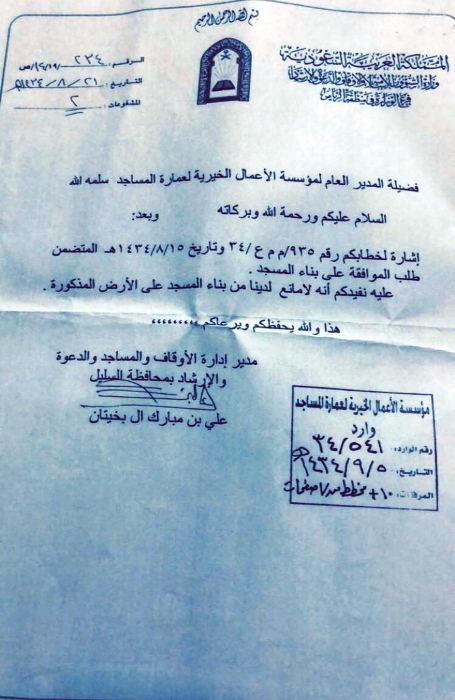 بسم الله الرحمن الرحيم
المملكة العربية السعودية
وزارة الشؤون الإسلامية والأوقاف والدعوة والإرشاد
فرع الوزارة في منطقة الرياض
الرقم: ٢٣٤
التاريخ: ١٤٣٤/٨/٢١هـ
المشفوعات: ٢
فضيلة المدير العام لمؤسسة الأعمال الخيرية لعمارة المساجد سلمه الله
السلام عليكم ورحمة الله وبركاته وبعد:
إشارة لخطابكم رقم ٩٣٥/م م ع /٣٤ وتاريخ ١٤٣٤/٨/١٥هـ المتضمن
طلب الموافقة على بناء المسجد .
عليه نفيدكم أنه لامانع لدينا من بناء المسجد على الأرض المذكورة .
هذا والله يحفظكم ويرعاكم ،،،،،،،،،
مدير إدارة الأوقاف والمساجد والدعوة
والإرشاد بمحافظة السليل
علي بن مبارك ال بخيتان
مؤسسة الأعمال الخيرية لعمارة المساجد
وارد
رقم الوارد: ٣٤/٥٤١
التاريخ: ١٤٣٤/٩/٥هـ
المرفقات: ١٠+ مخطط